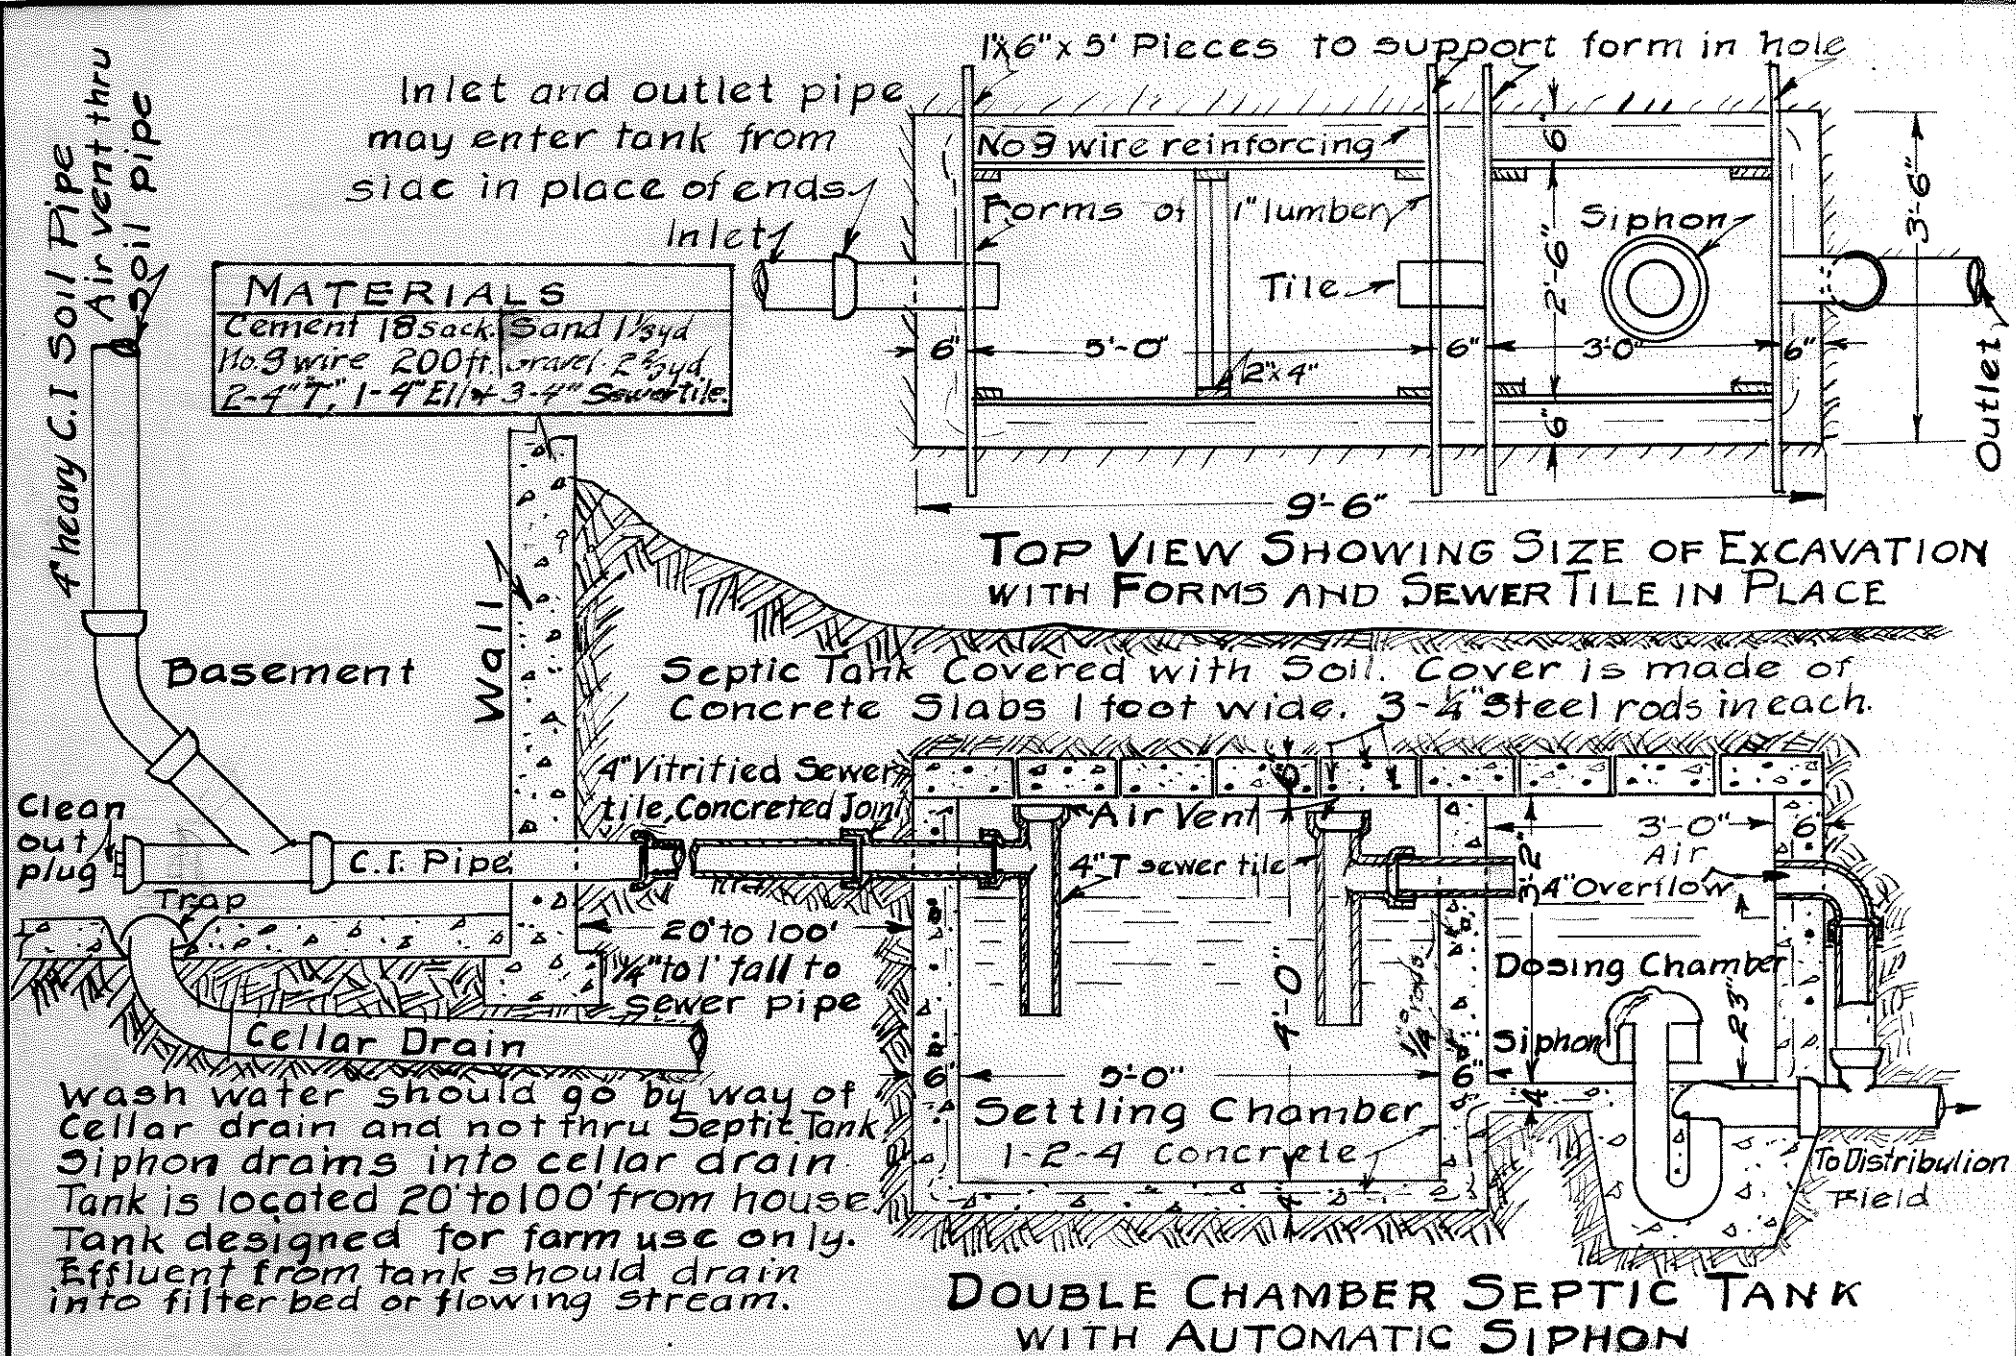 4" heavy C.I Soil Pipe
Air vent thru
soil pipe
Inlet and outlet pipe
may enter tank from
side in place of ends
Inlet
MATERIALS
Cement 18 sack. Sand 1⅓yd
No.9 wire 200ft. Gravel 2⅔yd
2-4"T", 1-4"Ell & 3-4" Sewer tile.
1"x6"x5' Pieces to support form in hole
No 9 wire reinforcing
Forms of 1" lumber
Siphon
Tile
6"
2'-6"
6"
3'-6"
6"
5'-0"
6"
3'0"
6"
2"x4"
Outlet
9'-6"
TOP VIEW SHOWING SIZE OF EXCAVATION
WITH FORMS AND SEWER TILE IN PLACE
Basement
Wall
Septic Tank Covered with Soil. Cover is made of
Concrete Slabs 1 foot wide. 3-¼" Steel rods in each.
4" Vitrified Sewer
tile, Concreted Joint
6"
Air Vent
Clean
out
plug
C.I. Pipe
Trap
4" T sewer tile
3'-0"
6"
Air
4" Overflow
3'-2"
20' to 100'
¼" to 1' fall to
sewer pipe
Cellar Drain
4'-0"
¼" rods
Dosing Chamber
Siphon
23"
6"
5'-0"
6"
4"
Settling Chamber
1-2-4 Concrete
4"
To Distribution
Field
Wash water should go by way of
Cellar drain and not thru Septic Tank
Siphon drains into cellar drain
Tank is located 20' to 100' from house.
Tank designed for farm use only.
Effluent from tank should drain
into filter bed or flowing stream.
DOUBLE CHAMBER SEPTIC TANK
WITH AUTOMATIC SIPHON